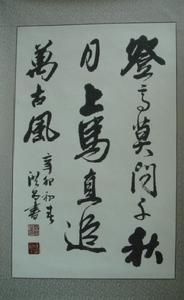 登高莫问千秋
月上马直追
萬古風
辛卯初春
书